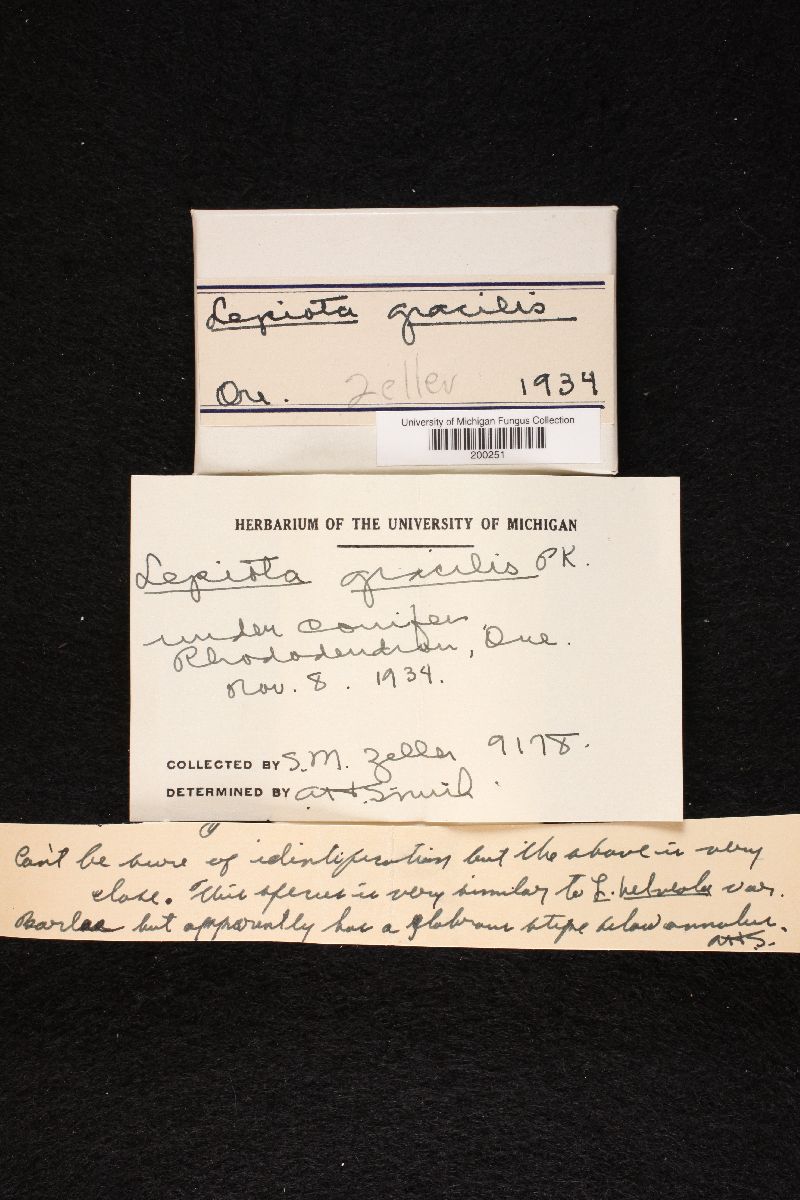 Lepiota gracilis
Ore. Zeller 1934
University of Michigan Fungus Collection
200251
HERBARIUM OF THE UNIVERSITY OF MICHIGAN
Lepiota gracilis PK.
under conifer
Rhododendron, Ore.
Nov. 8. 1934.
COLLECTED BY S.M. Zeller 9178.
DETERMINED BY AHSmith.
Can't be sure of identification but the above is very
close. This species is very similar to L. helveola var.
Barlae but apparently has a glabrous stipe below annulus.
AHS.